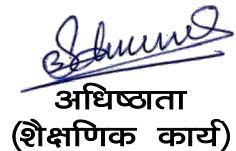 अधिष्ठाता
(शैक्षणिक कार्य)